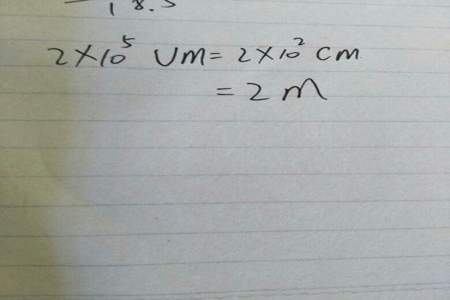 18.5
2×10⁵ UM = 2×10² CM
= 2 M